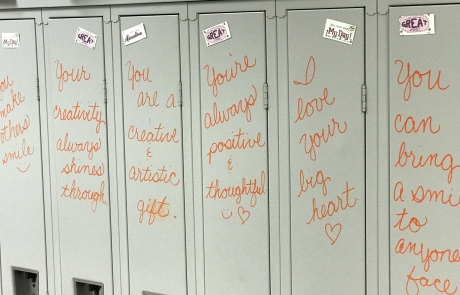 My Day!
you
make
others
smile
GREAT
Your
creativity
always
shines
through.
You
are a
creative
&
artistic
gift.
GREAT
You're
always
positive
&
thoughtful
My Day!
I
love
your
big
heart.
GREAT
You
can
bring
a smi
to
anyone
face